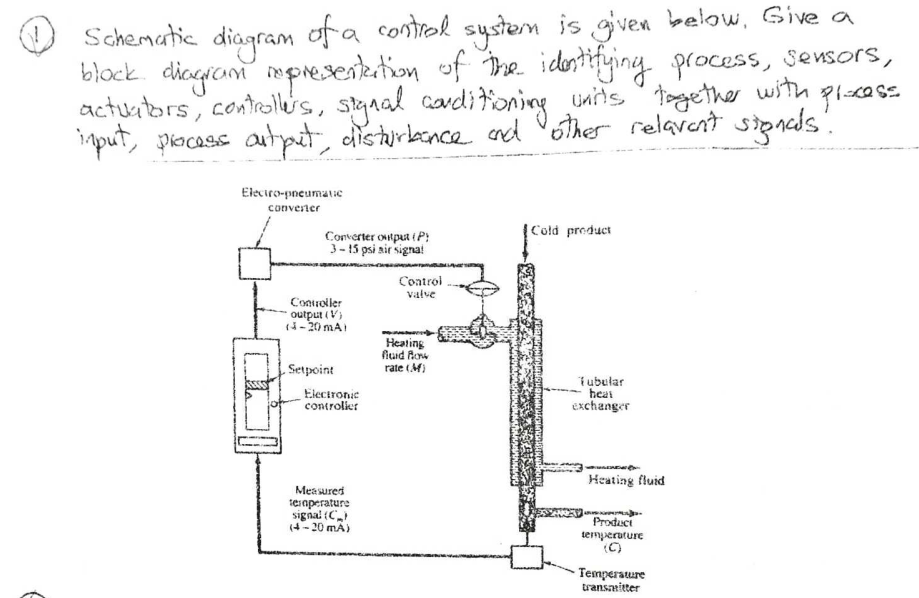 ① Schematic diagram of a control system is given below. Give a
block diagram representation of the identifying process, sensors,
actuators, controllers, signal conditioning units together with process
input, process output, disturbance and other relavant signals.
Electro-pneumatic
converter
Converter output (P)
3 – 15 psi air signal
Cold product
Control
valve
Controller
output (V)
(4 – 20 mA)
Heating
fluid flow
rate (M)
Setpoint
Electronic
controller
Tubular
heat
exchanger
Heating fluid
Measured
temperature
signal (Cm)
(4 – 20 mA)
Product
temperature
(C)
Temperature
transmitter